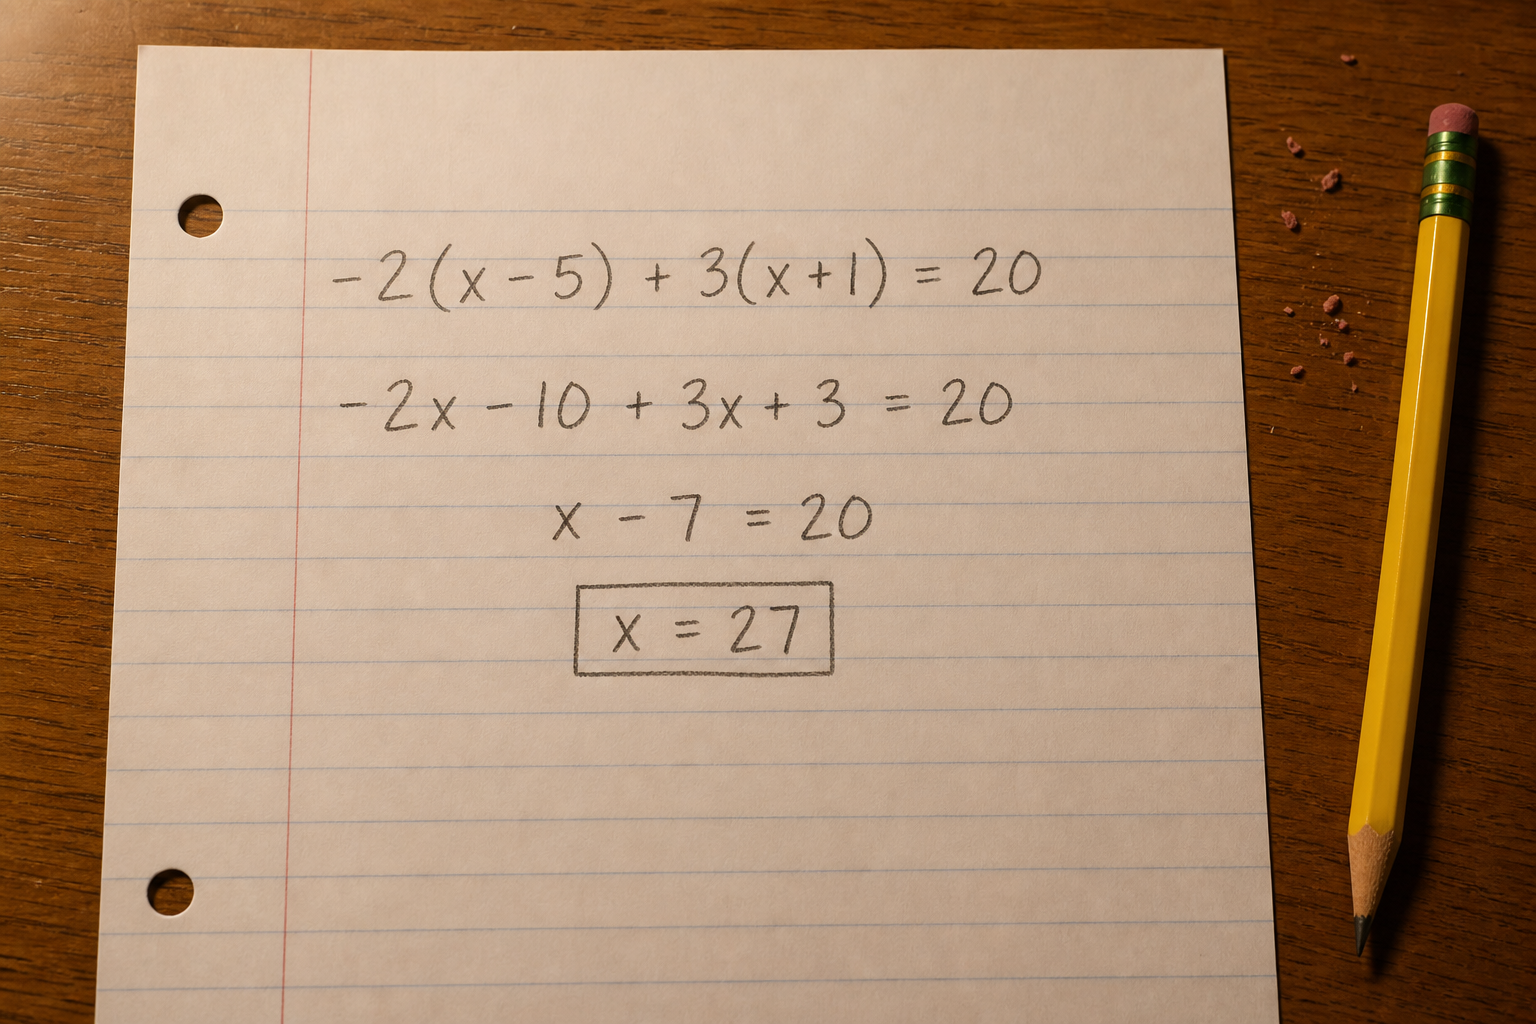 -2(x-5) + 3(x+1) = 20
-2x - 10 + 3x + 3 = 20
x - 7 = 20
x = 27